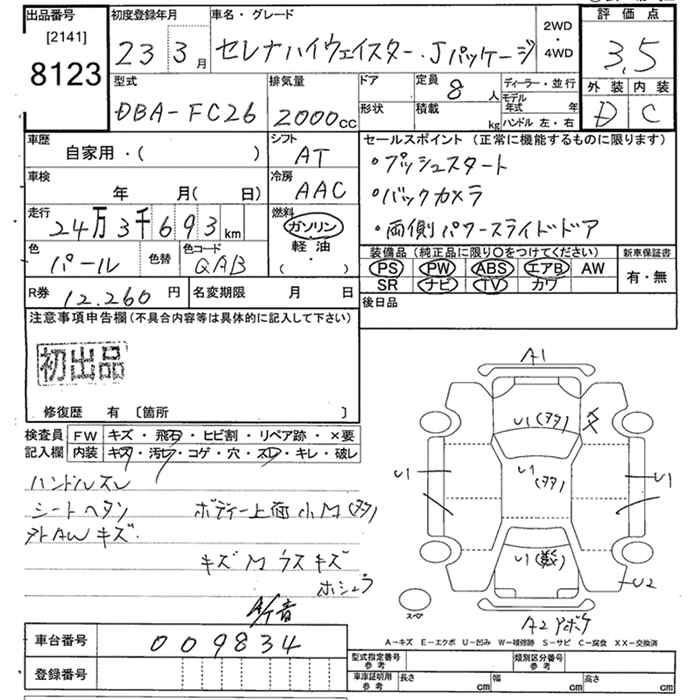 出品番号
[2141]
8123
初度登録年月
23 3 月
車名・グレード
セレナハイウェイスター・Jパッケージ
2WD
・
4WD
評価点
3.5
外装 内装
D C
型式
DBA-FC26
排気量
2000cc
ドア
形状
定員
8 人
積載
kg
ディーラー・並行
モデル年式 年
ハンドル 左・右
車歴
自家用・( )
シフト
AT
車検
年 月( 日)
冷房
AAC
走行
24万3千693km
燃料
ガソリン
軽油
( ・ )
色
パール
色替
色コード
QAB
R券 12,260円
名変期限 月 日
セールスポイント (正常に機能するものに限ります)
・プッシュスタート
・バックカメラ
・両側パワースライドドア
装備品 (純正品に限り○をつけてください)
PS PW ABS エアB AW
SR ナビ TV カワ
新車保証書
有・無
後日品
注意事項申告欄(不具合内容等は具体的に記入して下さい)
初出品
修復歴 有 〔箇所 〕
検査員記入欄
FW キズ・飛石・ヒビ割・リペア跡・×要
内装 キズ・汚レ・コゲ・穴・スレ・キレ・破レ
ハンドルスレ
シートヘタン
AW キズ
ボディー上面小M(タタ)
キズMウスキズ
A1
U1(タタ)
U1
(タタ)
U1
U1
U1(数)
U2
A2
スペア
A-キズ E-エクボ U-凹み W-補修跡 S-サビ C-腐食 XX-交換済
車台番号
009834
登録番号
型式指定番号
参考
類別区分番号
参考
車庫証明用
参考
長さ cm
幅 cm
高さ cm